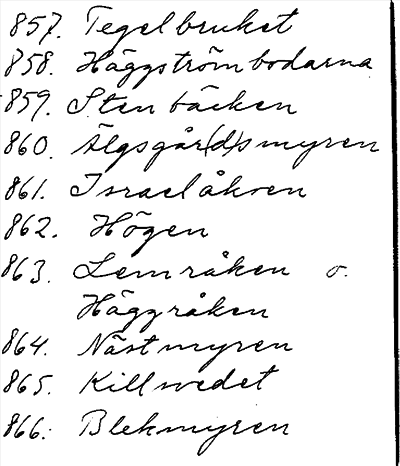 857. Tegelbruket
858. Häggströmbodarna
859. Stenbäcken
860. Älgsgår(d)smyren
861. Israelåkren
862. Högen
863. Lemråken o.
Häggråken
864. Nästmyren
865. Killsvedet
866. Blekmyren